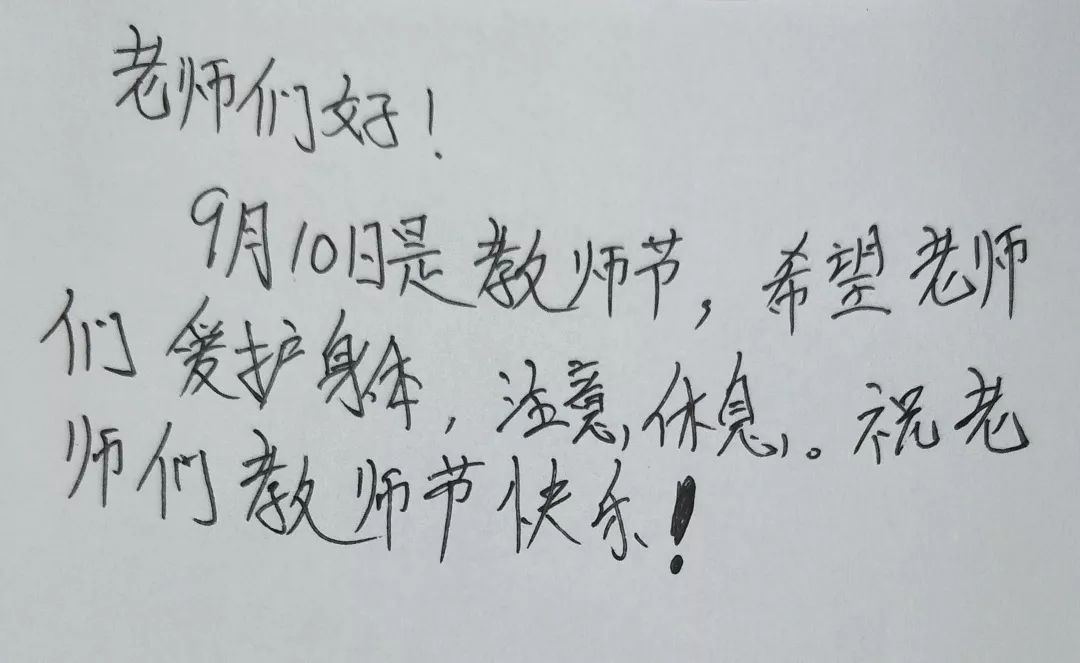 老师们好！
9月10日是教师节，希望老师
们爱护身体，注意休息。祝老
师们教师节快乐！